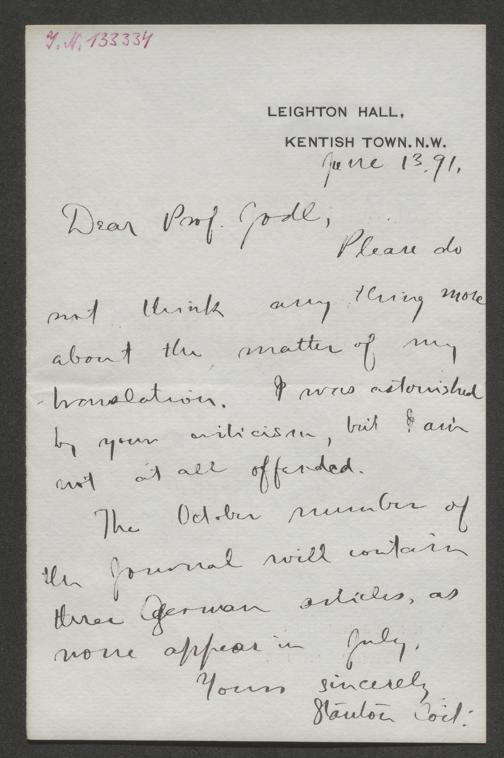 J. N. 133334
LEIGHTON HALL,
KENTISH TOWN. N.W.
June 13. 91.
Dear Prof. Jodl,
Please do
not think any thing more
about the matter of my
translation. I was astonished
by your criticism, but I am
not at all offended.
The October number of
the Journal will contain
three German articles, as
none appear in July.
Yours sincerely
Stanton Coit.